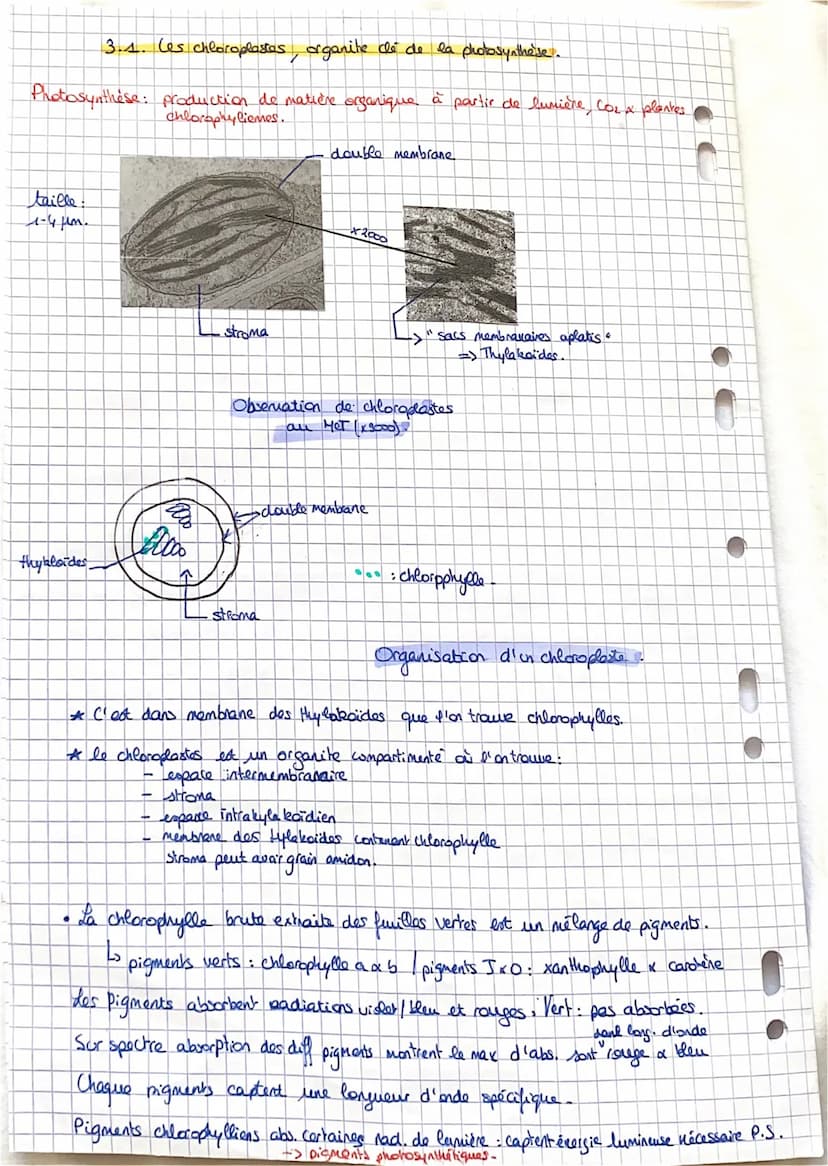 3.1. Les chloroplastes, organite clé de la photosynthèse.
Photosynthèse: production de matière organique à partir de lumière, CO2 α plantes
chlorophyliennes.
double membrane
taille:
1-4 µm.
x2000
stroma
"sacs membranaires aplatis"
=> Thylakoïdes.
Observation de chloroplastes
au MET (x9000).
double membrane
thyklaoïdes
: chlorpphylle
stroma
Organisation d'un chloroplaste.
* C'est dans membrane des thylakoïdes que l'on trouve chlorophylles.
* le chloroplastes est un organite compartimenté où l'on trouve:
- espace intermembranaire
- stroma
- espace intrakylakoïdien
- membrane des tylakoides contenant chlorophylle
stroma peut avoir grain amidon.
• La chlorophylle brute extraite des feuilles vertes est un mélange de pigments.
↳ pigments verts: chlorophylle a α b / pigments J α O: xanthophylle α carotène
Les pigments absorbent radiations violet/bleu et rouges, Vert: pas absorbées.
Sur spectre absorption des diff pigments montrent le max d'abs. sont rouge α bleu
dont long. d'onde
Chaque pigments captent une longueur d'onde spécifique.
Pigments chlorophylliens abs. certaines rad. de lumière: captent énergie lumineuse nécessaire P.S.
-> pigments photosynthétiques.